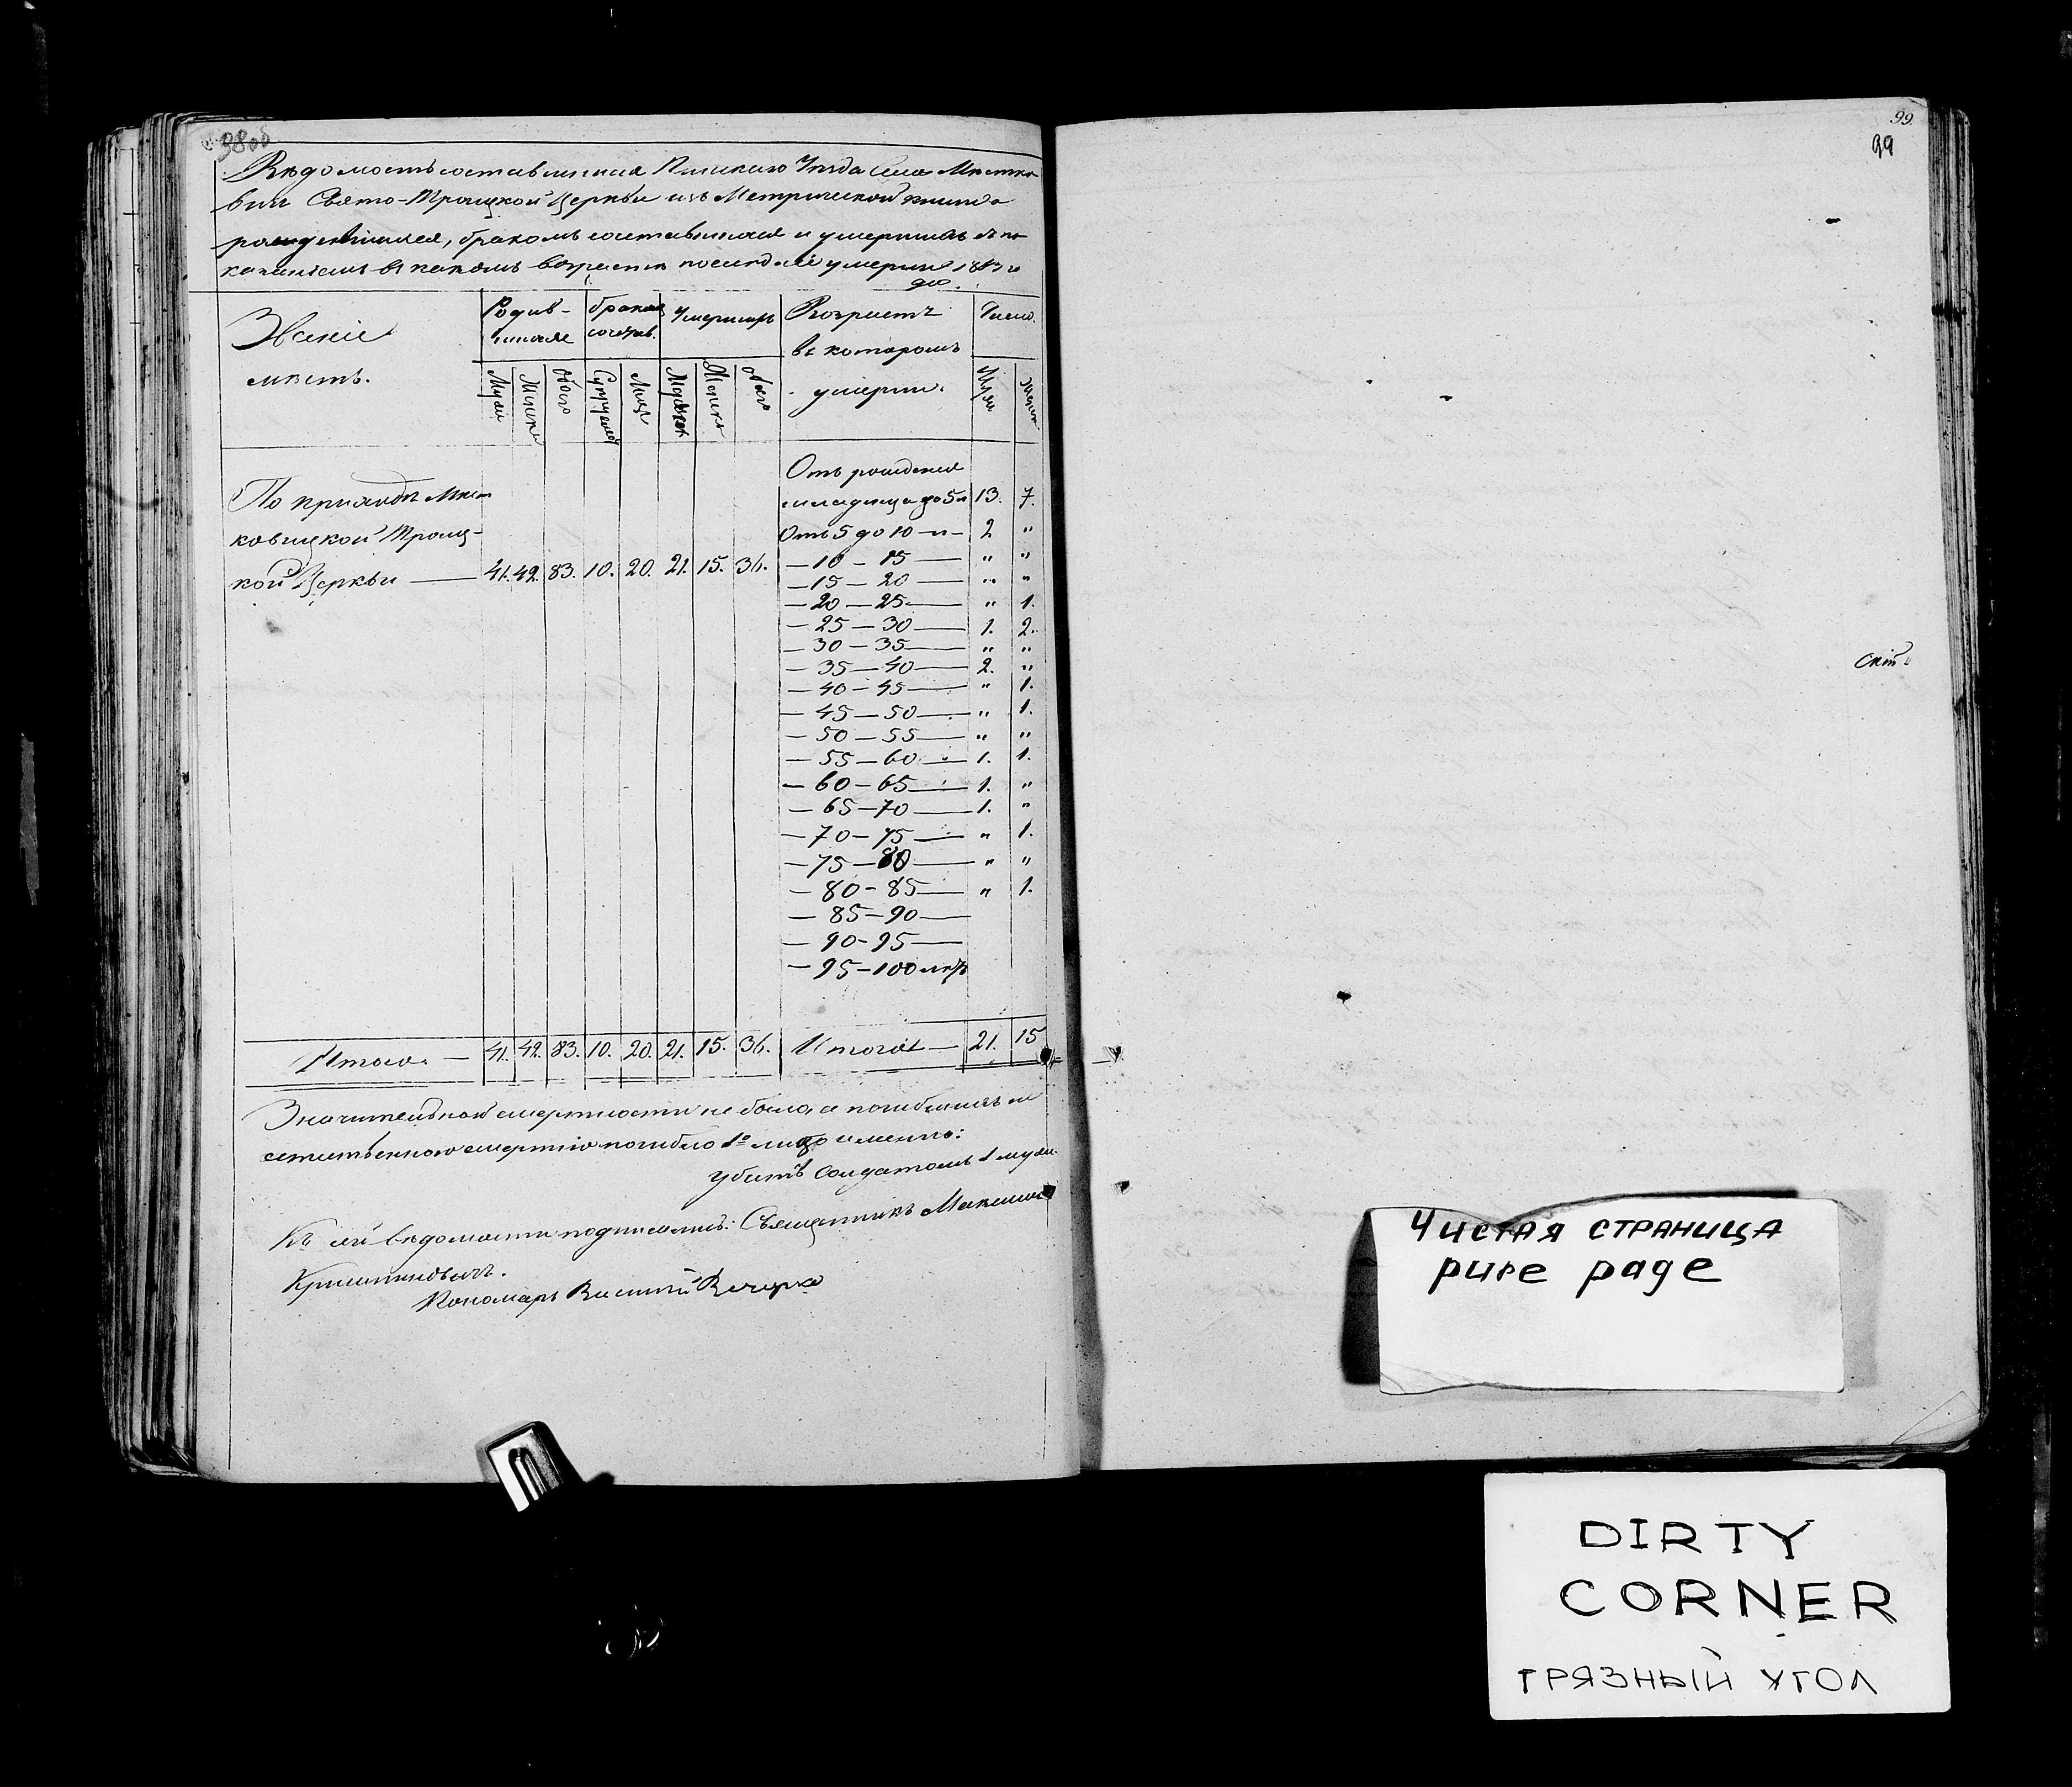 98 об
Вѣдомость составленная Пинскаго Уѣзда Села Мѣстко
вичъ Свято-Троицкой Церкви изъ Метрической книги о
родившихся, бракомъ сочетавшихся и умершихъ съ по
казаніемъ въ какомъ возрастѣ послѣдніе умерли
Званіе мѣстъ.
Родив-шихся
бракомъ сочетав.
Умершихъ
Возрастъ въ которомъ умерли.
Число.
Муж Женска Обоего Супружес Лицъ Мужеск Женска Обоего
Муж Женск
По приходѣ Мѣст
ковицкой Троиц-
кой Церкви — 41. 42. 83. 10. 20. 21. 15. 36.
Отъ рожденія
младенца до 5 л 13. 7.
Отъ 5 до 10 — л — 2 "
— 10 — 15 — " "
— 15 — 20 — " "
— 20 — 25 — " 1.
— 25 — 30 — 1. 2.
— 30 — 35 — " "
— 35 — 40 — 2. "
— 40 — 45 — " 1.
— 45 — 50 — " 1.
— 50 — 55 — " "
— 55 — 60 — 1. 1.
— 60 — 65 — 1. "
— 65 — 70 — 1. "
— 70 — 75 — " 1.
— 75 — 80 — " "
— 80 — 85 — " 1.
— 85 — 90 —
— 90 — 95 —
— 95 — 100 лѣтъ
Итого. — 41. 42. 83. 10. 20. 21. 15. 36. Итого — 21. 15
Значительной смертности не было, а погибшихъ не
естественною смертію погибло 1º лицо именно:
убитъ Солдатомъ 1 муж.
Къ сей вѣдомости подписались: Священникъ Максим
Пономарь Василій Вечерко
99.
99
Чистая страница
pure page
DIRTY
CORNER
ГРЯЗНЫЙ УГОЛ